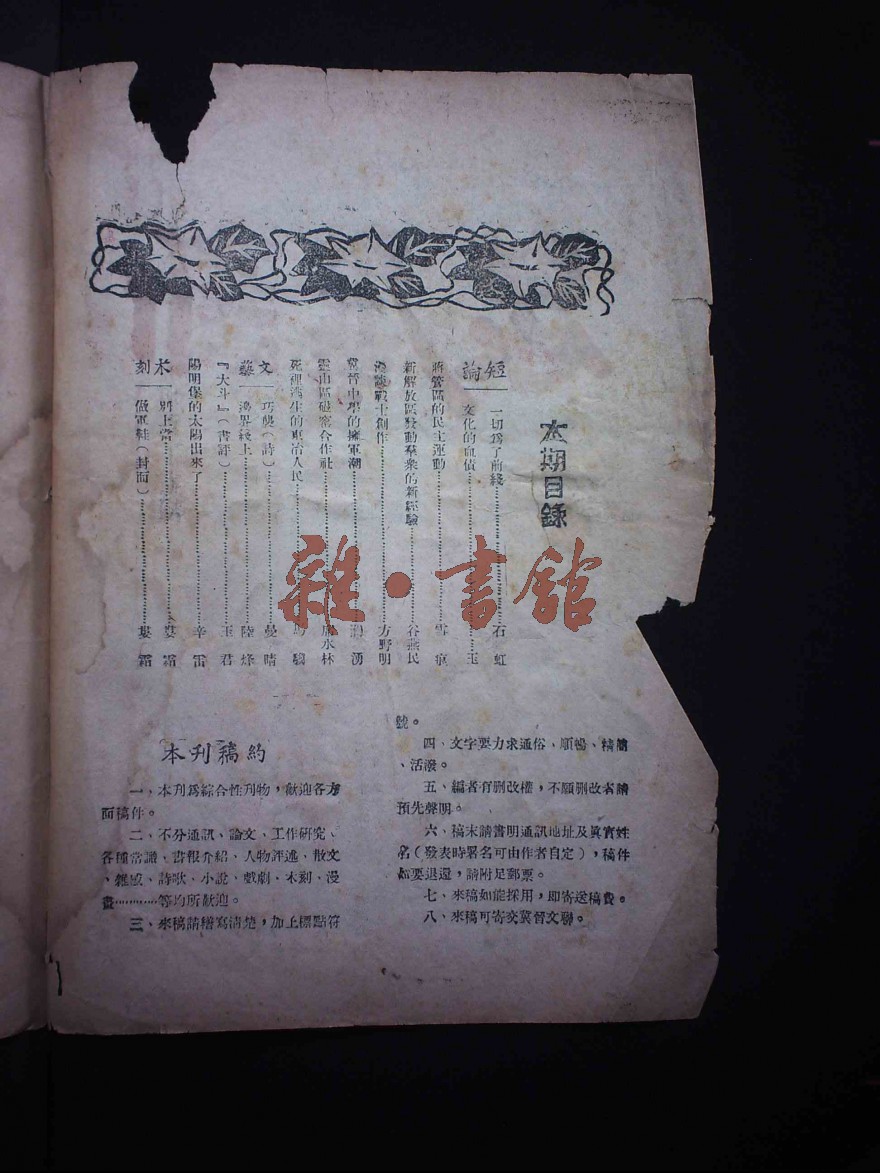 本期目錄
短論
一切爲了前綫 石虹
文化的血債 玉
蔣管區的民主運動 雪痕
新解放區發動羣衆的新經驗 谷燕民
漫談戰士創作 方野明
冀晉中學的擁軍潮 湧
靈山區磁窰合作社 永林
死裡逃生的東冶人民 駿
文藝
巧襲（詩） 曼晴
邊界綫上 陸烽
『大斗』（書評） 玉君
陽明堡的太陽出來了 辛雷
木刻
別上當 婁霜
做軍鞋（封面） 婁霜
雜·書館
本刊稿約
一、本刊爲綜合性刊物，歡迎各方
面稿件。
二、不分通訊、論文、工作研究、
各種常識、書報介紹、人物評述、散文
、雜感、詩歌、小說、戲劇、木刻、漫
畫…………等均所歡迎。
三、來稿請繕寫清楚，加上標點符
號。
四、文字要力求通俗、順暢、精簡
、活潑。
五、編者有删改權，不願删改者請
預先聲明。
六、稿末請書明通訊地址及眞實姓
名（發表時署名可由作者自定），稿件
如要退還，請附足郵票。
七、來稿如能採用，即寄送稿費。
八、來稿可寄交冀晉文聯。